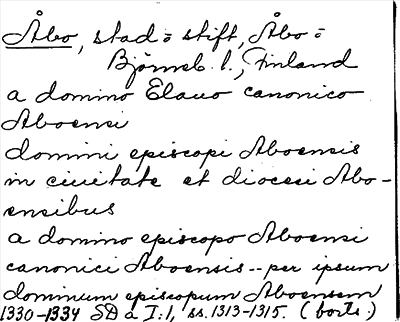 Åbo, stad o stift, Åbo o
Björneb. l., Finland
a domino Elauo canonico
Aboensi
domini episcopi Aboensis
in ciuitate et diocesi Abo-
ensibus
a domino episcopo Aboensi
canonici Aboensis -- per ipsum
dominum episcopum Aboensem
1330-1334 SD a I:1, ss. 1313-1315. (borts.)